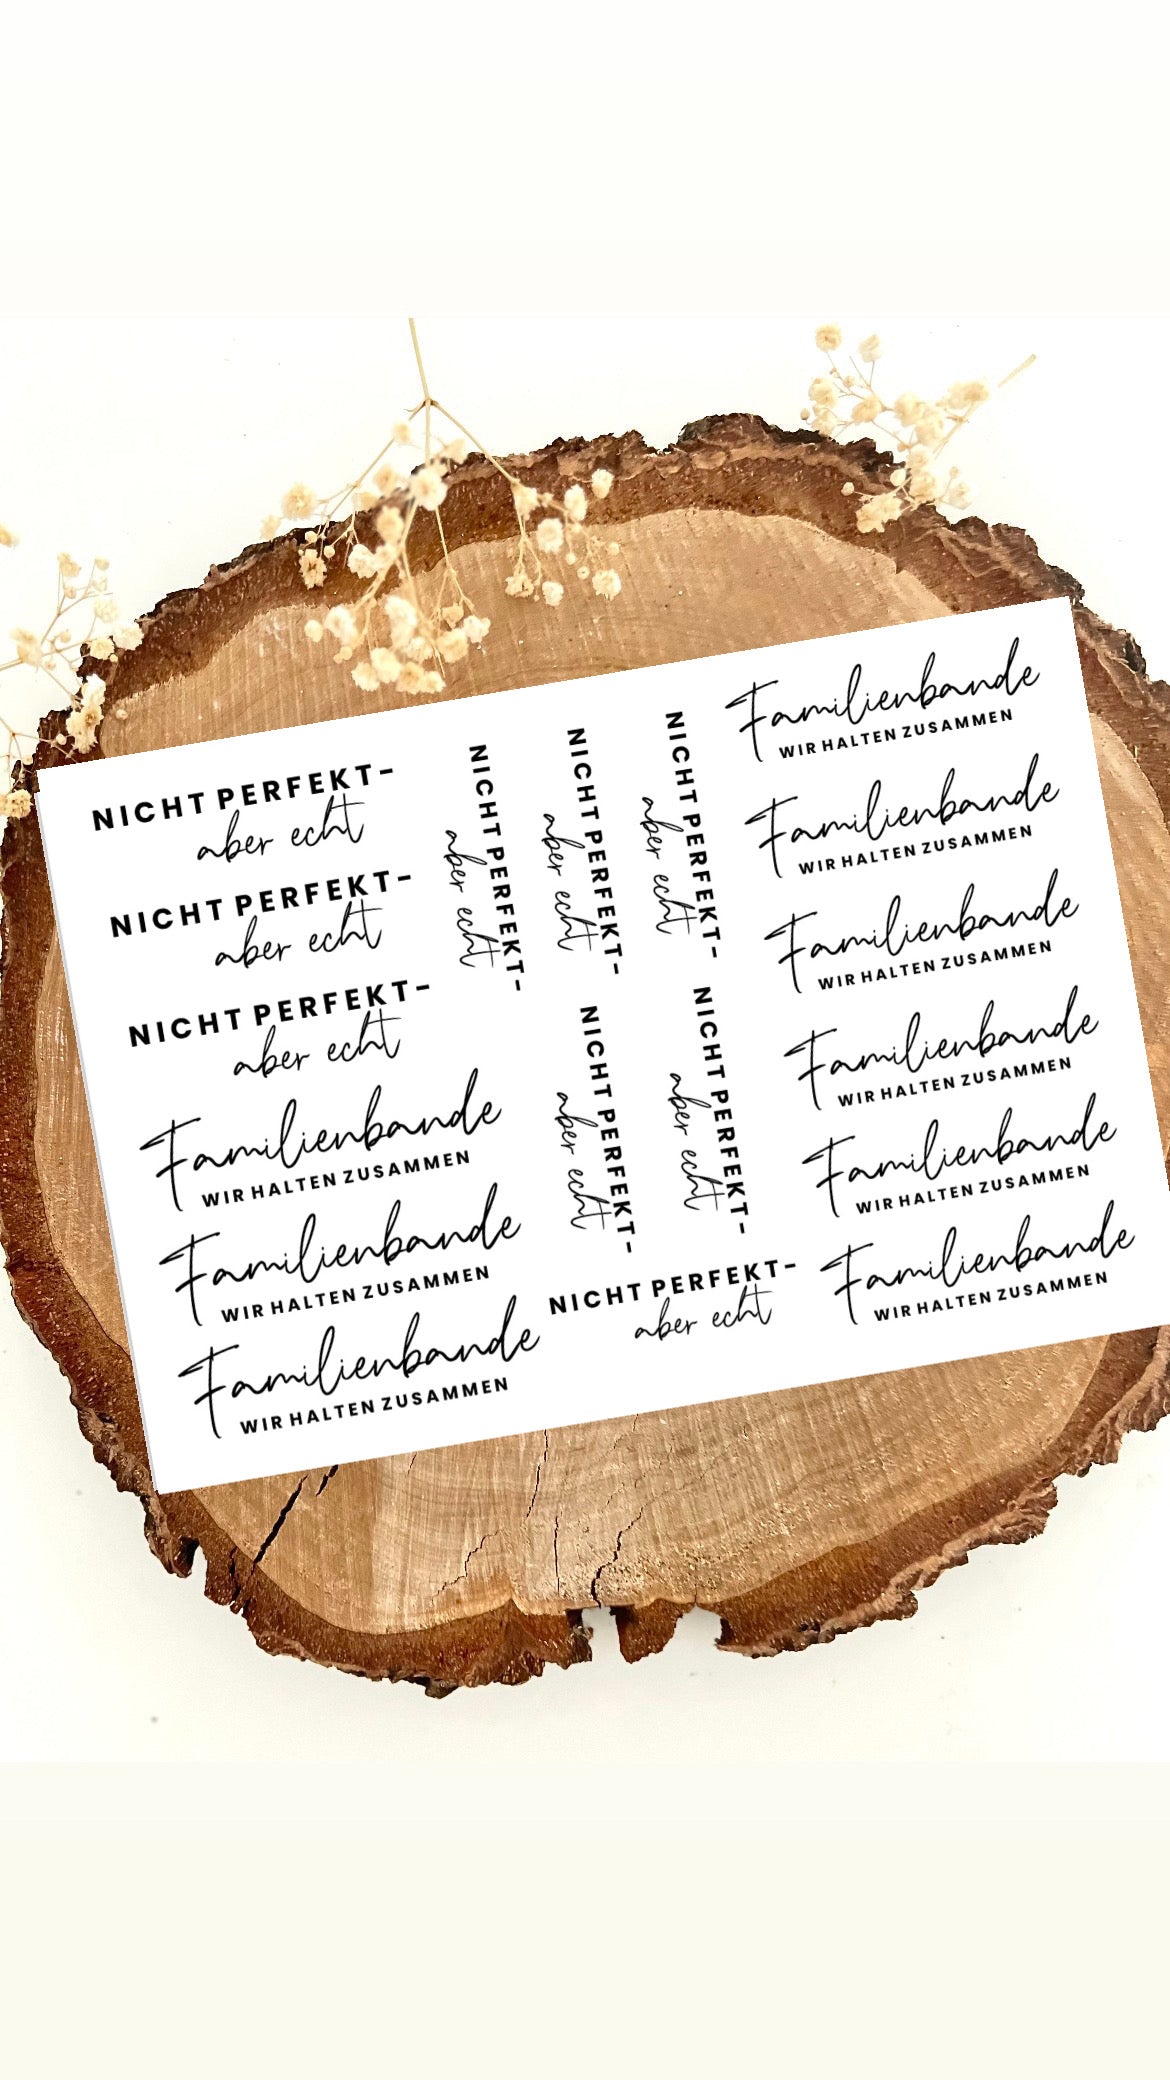 NICHT PERFEKT-
aber echt
NICHT PERFEKT-
aber echt
NICHT PERFEKT-
aber echt
Familienbande
WIR HALTEN ZUSAMMEN
Familienbande
WIR HALTEN ZUSAMMEN
Familienbande
WIR HALTEN ZUSAMMEN
NICHT PERFEKT-
aber echt
NICHT PERFEKT-
aber echt
NICHT PERFEKT-
aber echt
NICHT PERFEKT-
aber echt
NICHT PERFEKT-
aber echt
NICHT PERFEKT-
aber echt
Familienbande
WIR HALTEN ZUSAMMEN
Familienbande
WIR HALTEN ZUSAMMEN
Familienbande
WIR HALTEN ZUSAMMEN
Familienbande
WIR HALTEN ZUSAMMEN
Familienbande
WIR HALTEN ZUSAMMEN
Familienbande
WIR HALTEN ZUSAMMEN